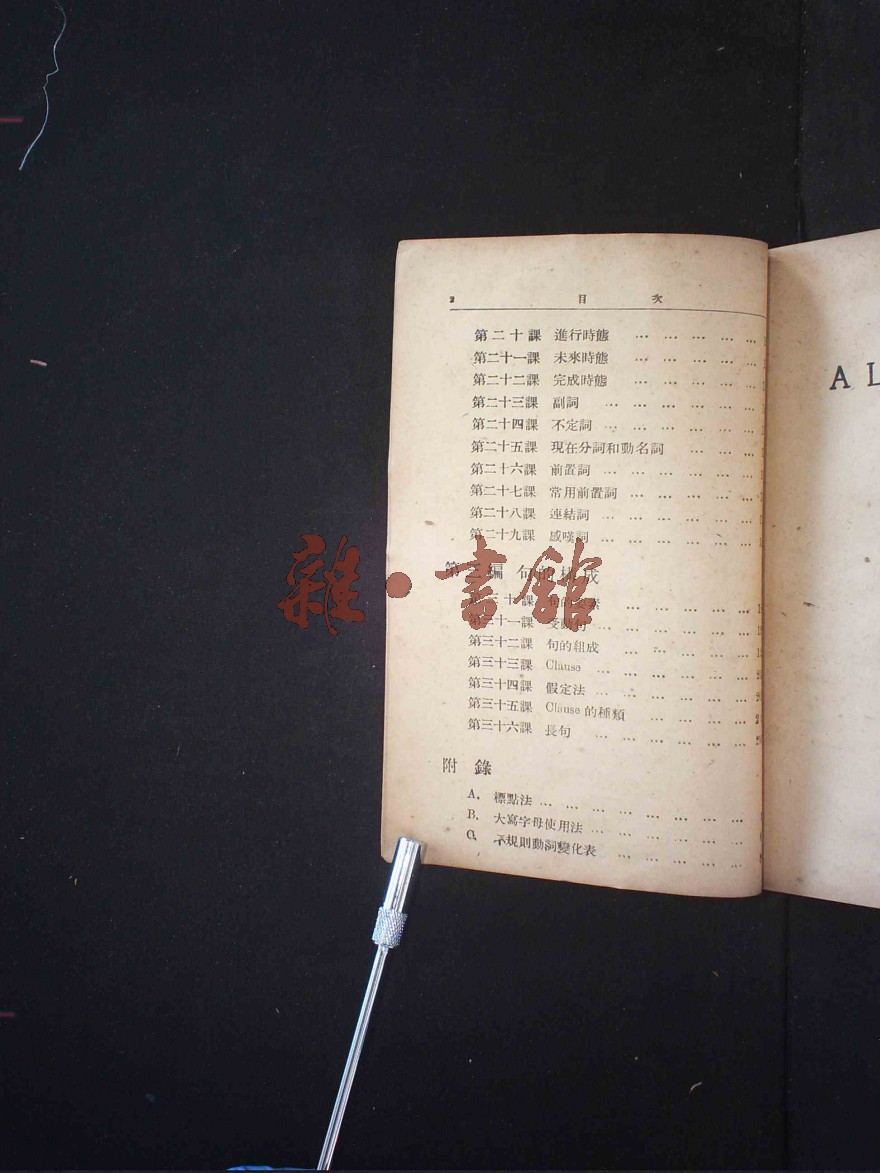 2 目 次
第二十課 進行時態 … … … … …
第二十一課 未來時態 … … … … …
第二十二課 完成時態 … … … … …
第二十三課 副詞 … … … … … …
第二十四課 不定詞 … … … … … …
第二十五課 現在分詞和動名詞 … … …
第二十六課 前置詞 … … … … … …
第二十七課 常用前置詞 … … … … …
第二十八課 連結詞 … … … … … …
第二十九課 感嘆詞 … … … … … …
第三編 句的構成
第三十課 句的要素 … … … … …
第三十一課 受動句 … … … … … …
第三十二課 句的組成 … … … … …
第三十三課 Clause … … … … …
第三十四課 假定法 … … … … … …
第三十五課 Clause 的種類 … … … …
第三十六課 長句 … … … … … …
附 錄
A. 標點法 … … … … … …
B. 大寫字母使用法 … … … …
C. 不規則動詞變化表 … … … …
AL
雜·書館